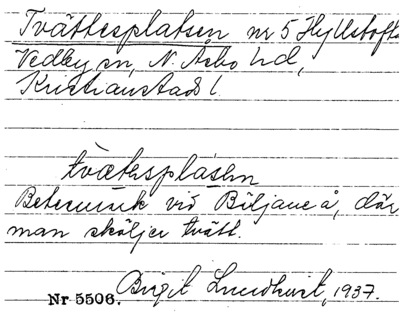 Tvättesplatsen nr 5 Hyllstofta
Vedby sn, N. Åsbo hd,
Kristianstads l.
tvætesplásen
Betesmark vid Biljane å, där
man sköljer tvätt.
Birgit Lundkvist, 1937.
Nr 5506.